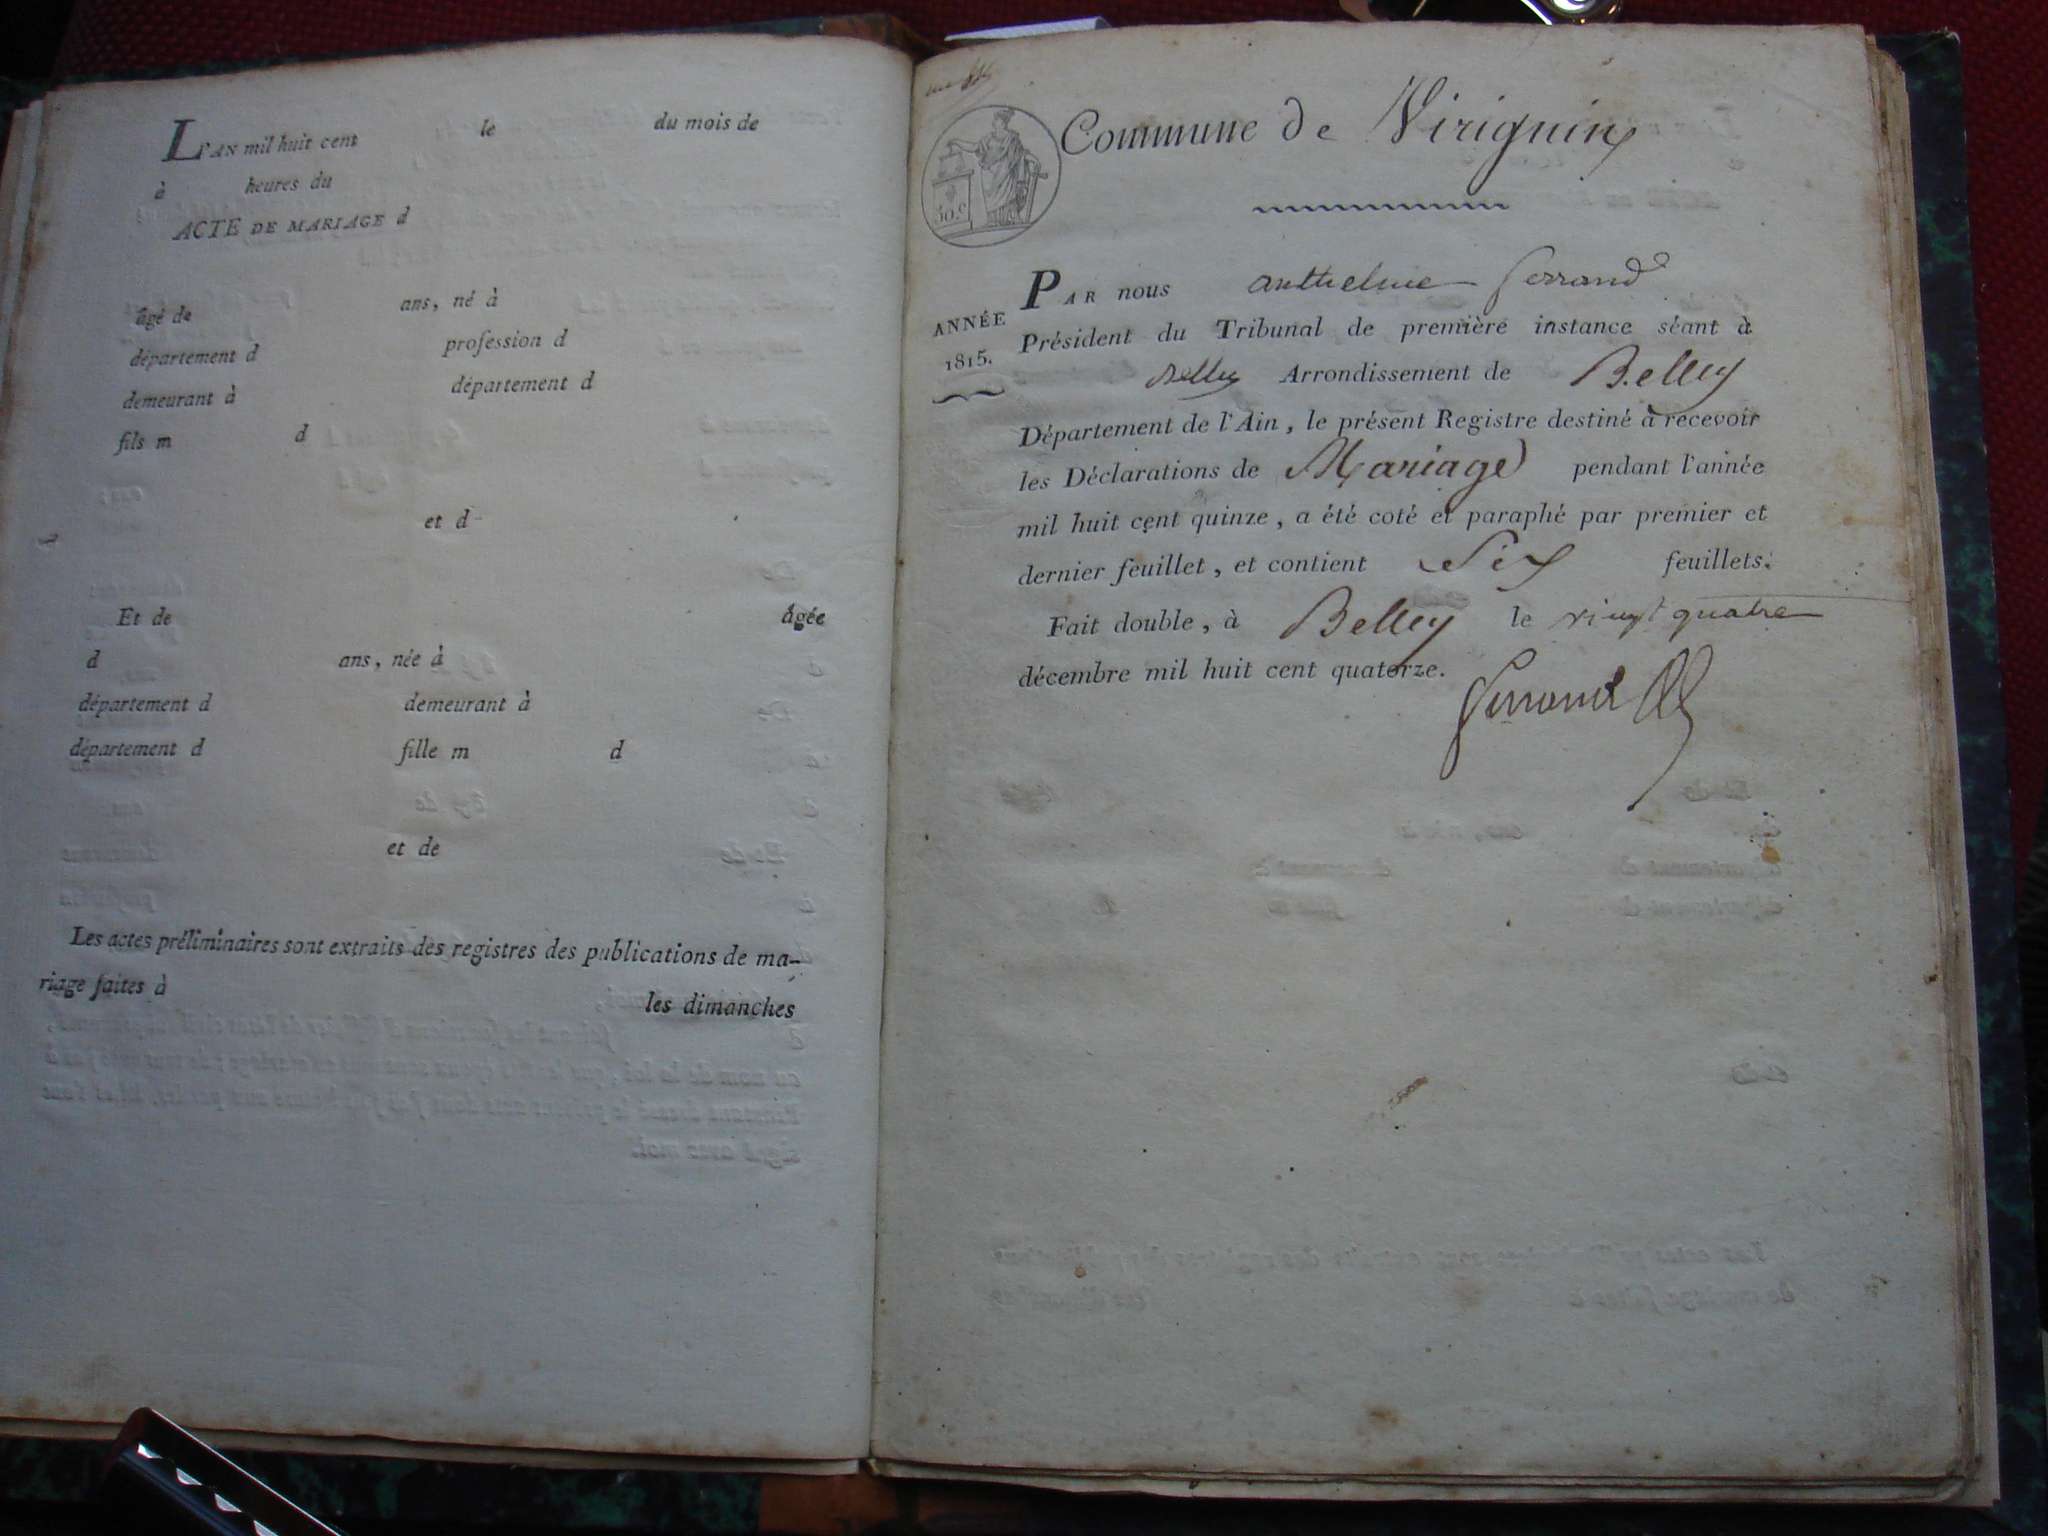 L'AN mil huit cent le du mois de
à heures du
ACTE DE MARIAGE d
âgé de ans, né à
département d profession d
demeurant à département d
fils m d
et d
Et de âgée
d ans, née à
département d demeurant à
département d fille m d
et de
Les actes préliminaires sont extraits des registres des publications de ma-
riage faites à les dimanches
Commune de Virignin
30.c
ANNÉE
1815.
PAR nous anthelme
Président du Tribunal de première instance séant à
Belley Arrondissement de Belley
Département de l'Ain, le présent Registre destiné à recevoir
les Déclarations de Mariage pendant l'année
mil huit cent quinze, a été coté et paraphé par premier et
dernier feuillet, et contient Six feuillets.
Fait double, à Belley le vingt quatre
décembre mil huit cent quatorze.